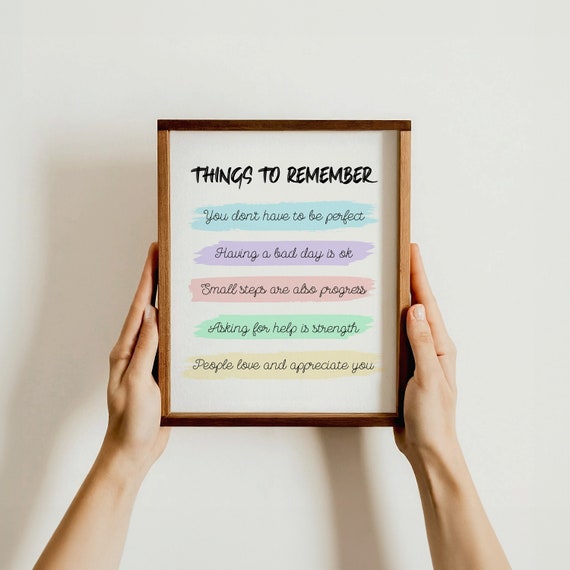 THINGS TO REMEMBER
You don't have to be perfect
Having a bad day is ok
Small steps are also progress
Asking for help is strength
People love and appreciate you